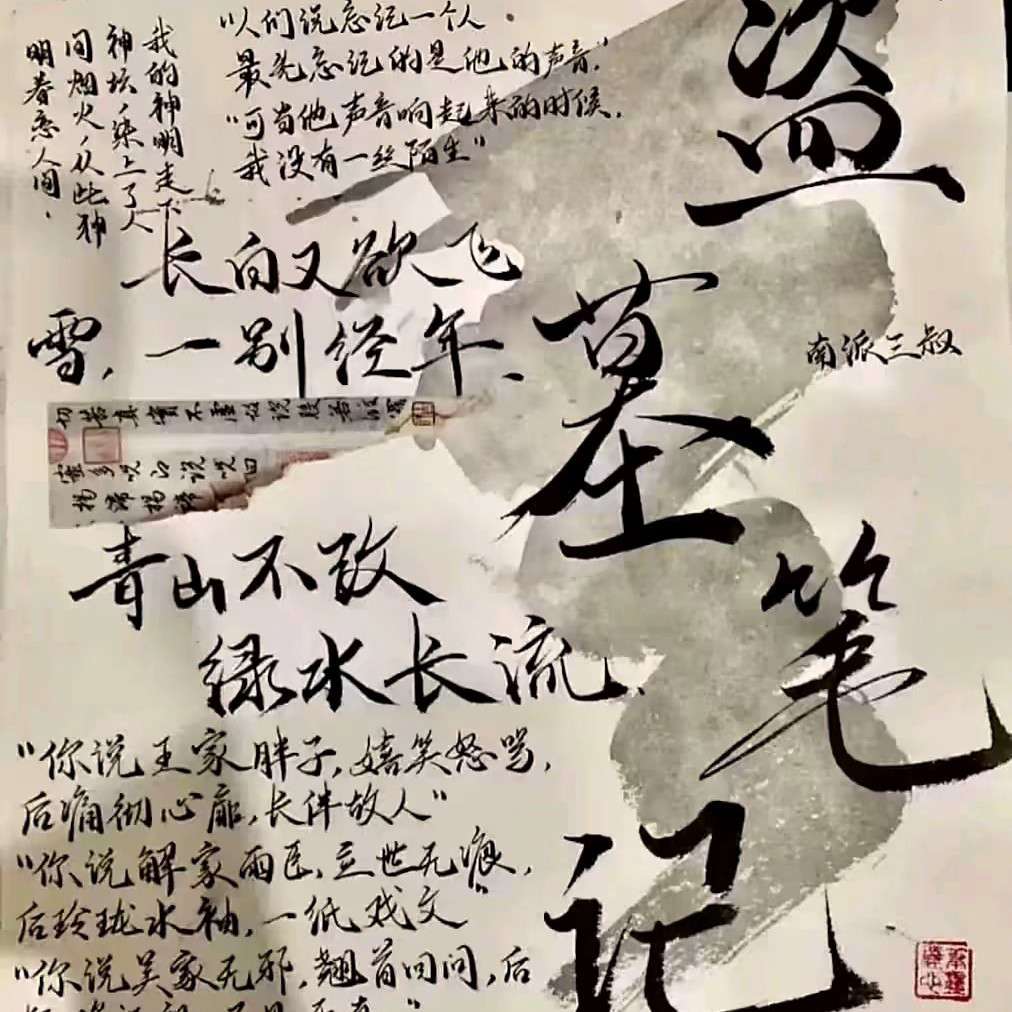 盗墓笔记
南派三叔
"人们说忘记一个人
最先忘记的是他的声音."
"可当他声音响起来的时候,
我没有一丝陌生"
我的神明走下
神坛,染上了人
间烟火,从此神
明眷恋人间.
长白又欲飞
雪,一别经年、
切苦真實不虛故說般若
蜜多咒即說咒曰
揭諦揭諦
青山不改
绿水长流.
"你说王家胖子,嬉笑怒骂,
后痛彻心扉,长伴故人"
"你说解家雨臣,立世无痕,
后玲珑水袖,一纸戏文"
"你说吴家无邪,翘首回问,后